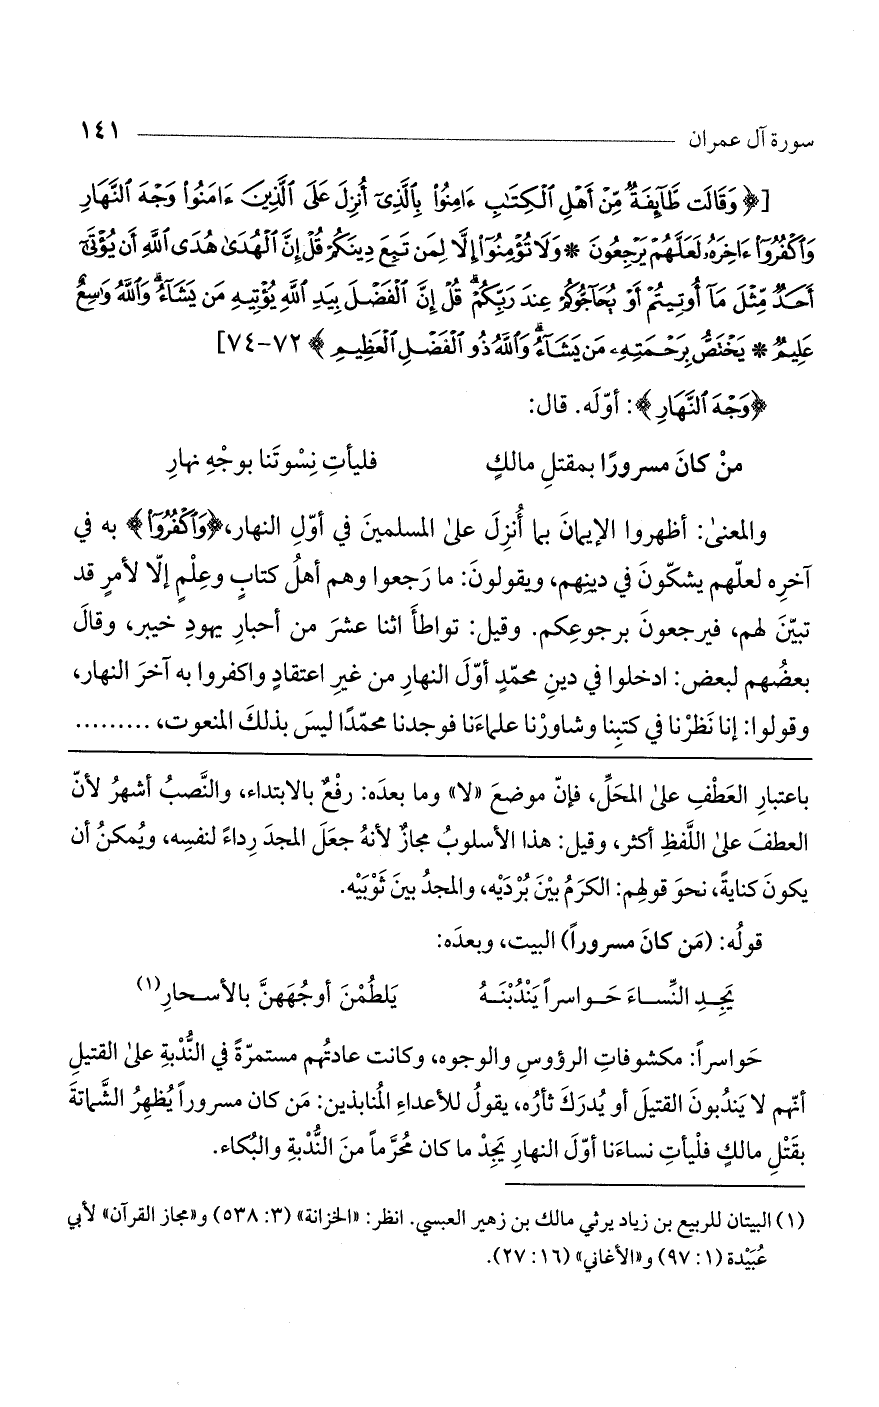 سورة آل عمران ١٤١
[﴿ وَقَالَت طَّآئِفَةٌ مِّنْ أَهْلِ ٱلْكِتَٰبِ ءَامِنُوا۟ بِٱلَّذِىٓ أُنزِلَ عَلَى ٱلَّذِينَ ءَامَنُوا۟ وَجْهَ ٱلنَّهَارِ
وَٱكْفُرُوٓا۟ ءَاخِرَهُۥ لَعَلَّهُمْ يَرْجِعُونَ * وَلَا تُؤْمِنُوٓا۟ إِلَّا لِمَن تَبِعَ دِينَكُمْ قُلْ إِنَّ ٱلْهُدَىٰ هُدَى ٱللَّهِ أَن يُؤْتَىٰٓ
أَحَدٌ مِّثْلَ مَآ أُوتِيتُمْ أَوْ يُحَآجُّوكُمْ عِندَ رَبِّكُمْ ۗ قُلْ إِنَّ ٱلْفَضْلَ بِيَدِ ٱللَّهِ يُؤْتِيهِ مَن يَشَآءُ ۗ وَٱللَّهُ وَٰسِعٌ
عَلِيمٌ * يَخْتَصُّ بِرَحْمَتِهِۦ مَن يَشَآءُ ۗ وَٱللَّهُ ذُو ٱلْفَضْلِ ٱلْعَظِيمِ ﴾ ٧٢-٧٤]
﴿وَجْهَ ٱلنَّهَارِ﴾: أوّلَه. قال:
منْ كانَ مسرورًا بمقتلِ مالكٍ فليأتِ نِسْوتَنا بوجْهِ نهارِ
والمعنىٰ: أظهروا الإيمانَ بما أُنزِلَ علىٰ المسلمينَ في أوّلِ النهار، ﴿وَٱكْفُرُوٓا۟﴾ به في
آخرِه لعلّهم يشكّونَ في دينِهم، ويقولونَ: ما رَجعوا وهم أهلُ كتابٍ وعِلْمٍ إلّا لأمرٍ قد
تبيّنَ لهم، فيرجعونَ برجوعِكم. وقيل: تواطأَ اثنا عشرَ من أحبارِ يهودِ خيبر، وقالَ
بعضُهم لبعض: ادخلوا في دينِ محمّدٍ أوّلَ النهارِ من غيرِ اعتقادٍ واكفروا به آخرَ النهار،
وقولوا: إنا نَظرْنا في كتبِنا وشاورْنا علماءَنا فوجدنا محمّدًا ليسَ بذلكَ المنعوت، .........
باعتبارِ العَطْفِ علىٰ المحَلِّ، فإنّ موضعَ «لا» وما بعدَه: رفْعٌ بالابتداء، والنَّصبُ أشهرُ لأنّ
العطفَ علىٰ اللَّفظِ أكثر، وقيل: هذا الأسلوبُ مجازٌ لأنهُ جعَلَ المجدَ رِداءً لنفسِه، ويُمكنُ أن
يكونَ كنايةً، نحوَ قولِهم: الكرَمُ بيْنَ بُرْدَيْه، والمجدُ بينَ ثَوْبَيْه.
قولُه: (مَن كانَ مسروراً) البيت، وبعدَه:
يَجِـدِ النِّسـاءَ حَـواسراً يَنْدُبْنَـهُ يَلطُمْنَ أوجُهَهنَّ بالأسـحارِ(١)
حَواسراً: مكشوفاتِ الرؤوسِ والوجوه، وكانت عادتُهم مستمرّةً في النُّدْبةِ علىٰ القتيلِ
أنّهم لا يَندُبونَ القتيلَ أو يُدرَكَ ثأرُه، يقولُ للأعداءِ المُنابذين: مَن كان مسروراً يُظهِرُ الشَّماتةَ
بقَتْلِ مالكٍ فلْيأتِ نساءَنا أوّلَ النهارِ يَجِدْ ما كان مُحرَّماً منَ النُّدْبةِ والبُكاء.
(١) البيتان للربيع بن زياد يرثي مالك بن زهير العبسي. انظر: «الخزانة» (٣: ٥٣٨) و«مجاز القرآن» لأبي
عُبَيْدة (١: ٩٧) و«الأغاني» (١٦: ٢٧).